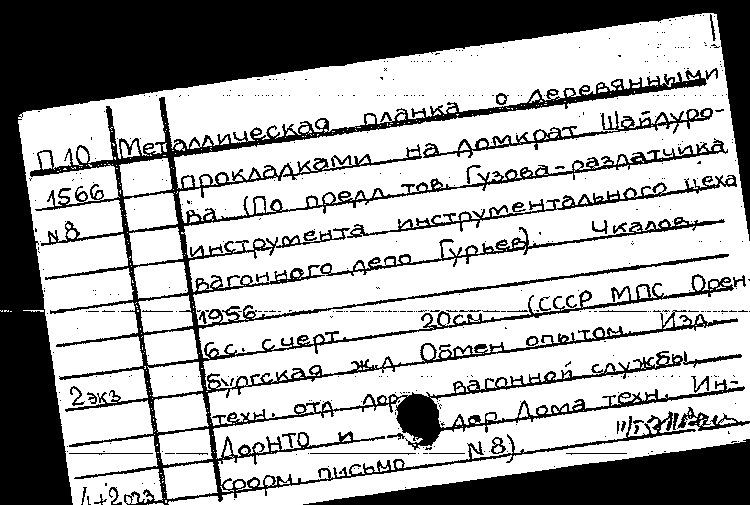 П 10 Металлическая планка с деревянными
1566 прокладками на домкрат Шайдуро-
N 8 ва. (По предл. тов. Гузова-раздатчика
инструмента инструментального цеха
вагонного депо Гурьев). Чкалов,
1956.
6с. с черт. 20см. (СССР МПС Орен-
2экз бургская ж.д. Обмен опытом. Изд.
техн. отд. дор. вагонной службы,
ДорНТО и дор. Дома техн. Ин-
форм. письмо N 8).